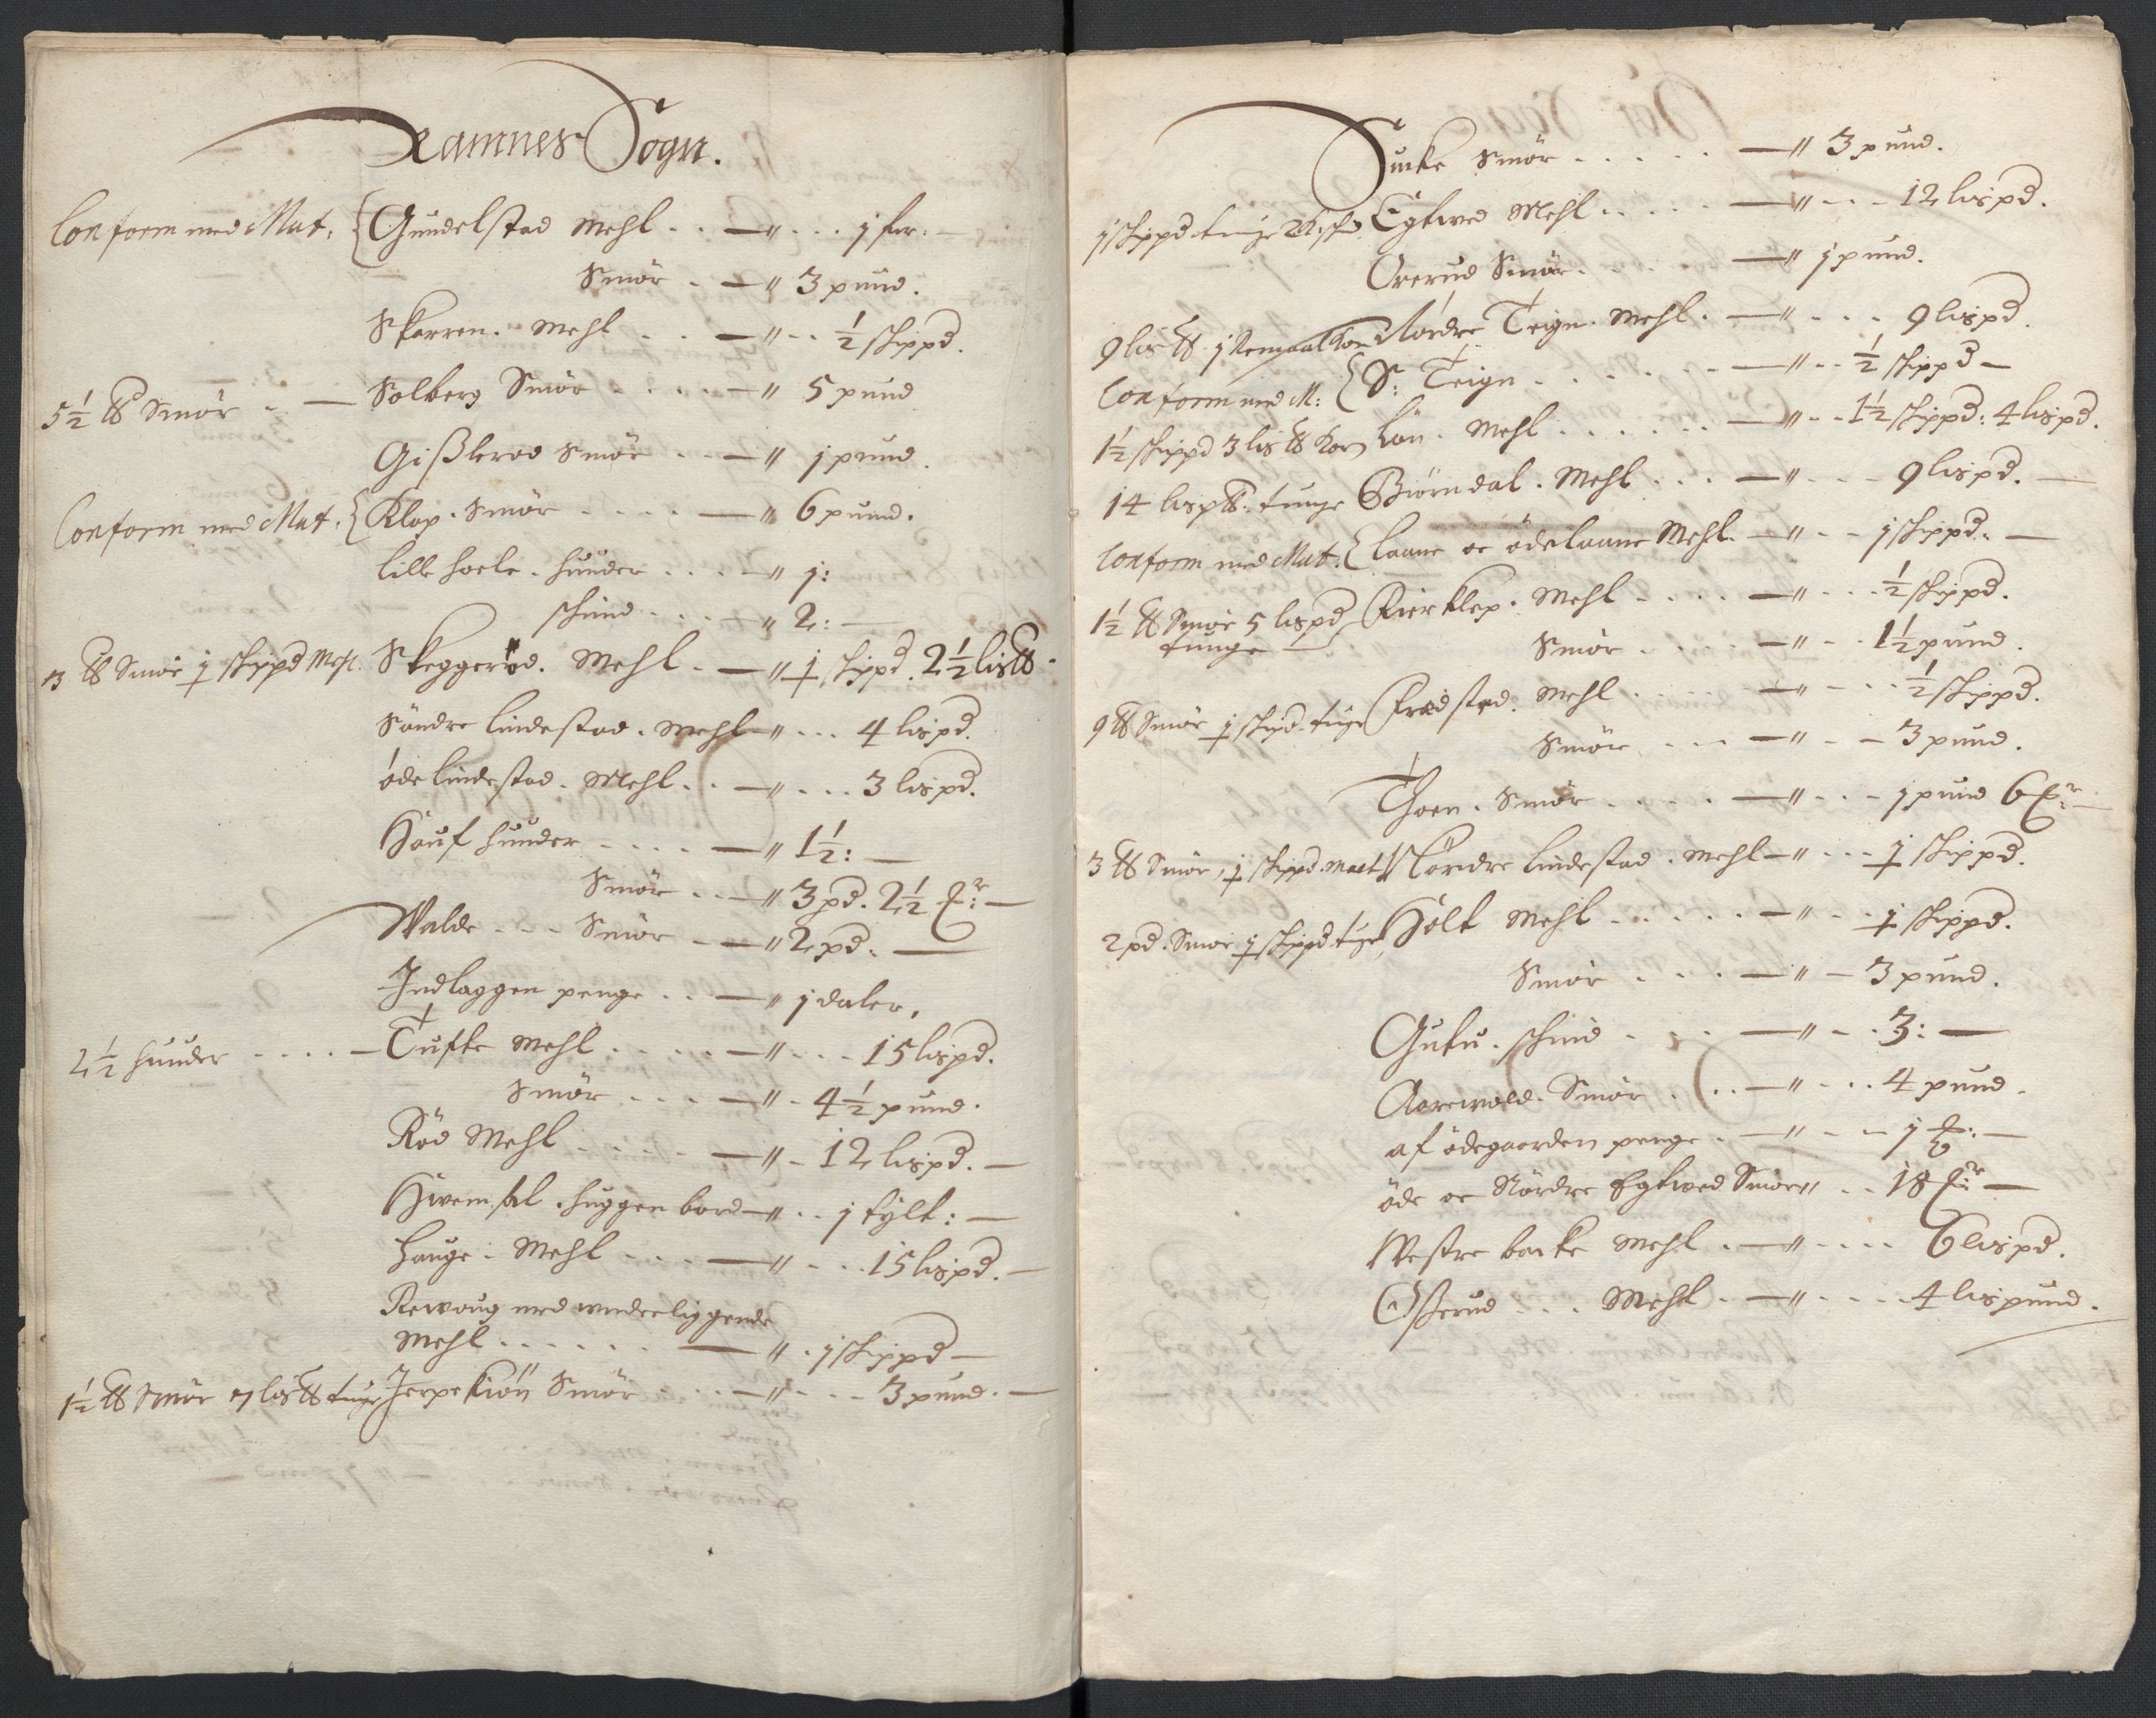 Ramnes Sogn.
Conform med Mat. { Gundelstad Mehl . . — " . . . j for: —
Smör . — " 3 pund.
Skarren. Mehl . . . — " . . ½ skippd.
5½ ℔ Smör . — Solberg Smör . . . . — " 5 pund
Gißlerod Smör . . — " j pund.
Conform med Mat. { Klop. Smör . . . . — " 6 pund.
lille hoele. huuder . . . . — " j:
schind . . . — " 2: —
3 ℔ Smör ɉ skippd Mehl. Skeggeröd. Mehl . — " ɉ skippd. 2½ lis℔.
Söndre lindestad. Mehl — " . . . 4 lispd.
öde lindestad. Mehl . . — " . . . 3 lispd.
Hauf huuder . . . . — " 1½: —
Smör . . — " 3 pd. 2½
Walde . . . Smör . — " 2 pd. —
Indlaggen penge . . — " j daler.
2½ huuder . . . . — Tufte Mehl . . . . — " . . . 15 lispd.
Smör . . . — " . 4½ pund.
Röd Mehl . . . . — " . 12 lispd. —
Hwemsal. huggen bord — " . . j tylt: —
Hauge. Mehl . . . — " . . . 15 lispd. —
Rewoug med underliggende
Mehl . . . . . . — " . j skippd —
1½ ℔ Smör 7 lis℔ tunge Jerpekiön Smör . . . — " . . . 3 pund. —
Sucke Smör . . . . . — " 3 pund.
j skippd tunge 2 k: schd Egtwed Mehl . . . . . — " . . . 12 lispd.
Orerud Smör . . . . — " j pund.
9 lis℔ j Remaal Korn Nordre Teign. Mehl . — " . . . 9 lispd.
Conform med M: { S: Teign . . . . . . — " . . ½ skippd —
1½ skippd 3 lis℔ Korn Lön. Mehl . . . . . . — " . . 1½ skippd: 4 lispd.
14 lisp℔. tunge Biörndal. Mehl . . . — " . . . 9 lispd. —
Conform med Mat. { Laane oc ödelaane Mehl. — " . . j skippd. —
1½ ℔ Smör 5 lispd Kierklep. Mehl . . . . — " . . . ½ skippd.
tunge — Smör . . . . — " . . 1½ pund.
9 ℔ Smör ɉ skipd. tunge Fredsted. Mehl . . . . . — " . . . ½ skippd.
Smör . . . — " . . 3 pund.
Thoen. Smör . . . . . — " . . . j pund 6
3 ℔ Smör, ɉ skippd. Maelt Nordre lindestad. Mehl — " . . . ɉ skippd.
2 pd. Smör ɉ skippd tunge Holt Mehl . . . . . — " . . ɉ skippd.
Smör . . . — " — 3 pund.
Gutu. schind . . . — " . . 3: —
Aarewold. Smör . . . . — " . . . 4 pund.
af ödegaarden penge . — " . . j
öde oc Nördre Egtwed Smör " . . 18
Westre backe Mehl . — " . . . . 6 lispd.
Oßerud . . . Mehl . — " . . . . 4 lispund.